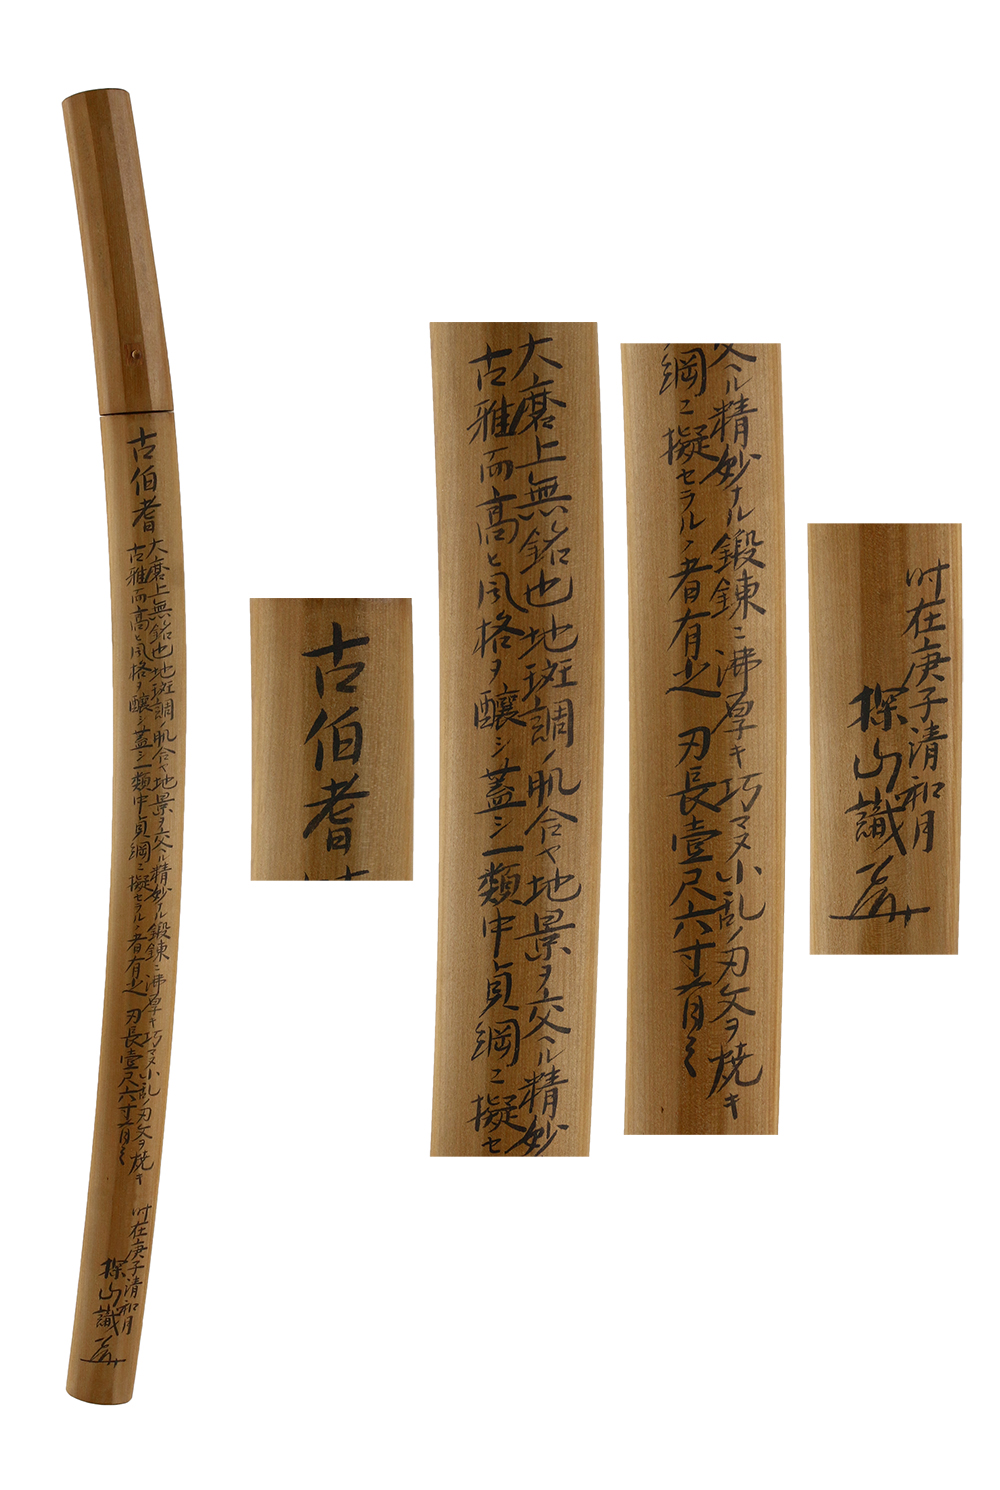 古伯耆
大磨上無銘也地斑調ノ肌合ヤ地景ヲ交ヘル精妙ナル鍛錬ニ沸厚キ巧マヌ小乱ノ刃文ヲ焼キ
古雅而高風格ヲ釀シ蓋シ一類中貞綱ニ擬セラルヽ者有之 刃長壹尺六寸
时在庚子清和月
探山識
古伯耆
大磨上無銘也地斑調ノ肌合ヤ地景ヲ交ヘル精妙
古雅而高風格ヲ釀シ蓋シ一類中貞綱ニ擬セ
交ヘル精妙ナル鍛錬ニ沸厚キ巧マヌ小乱ノ刃文ヲ焼キ
綱ニ擬セラルヽ者有之 刃長壹尺六寸
时在庚子清和月
探山識